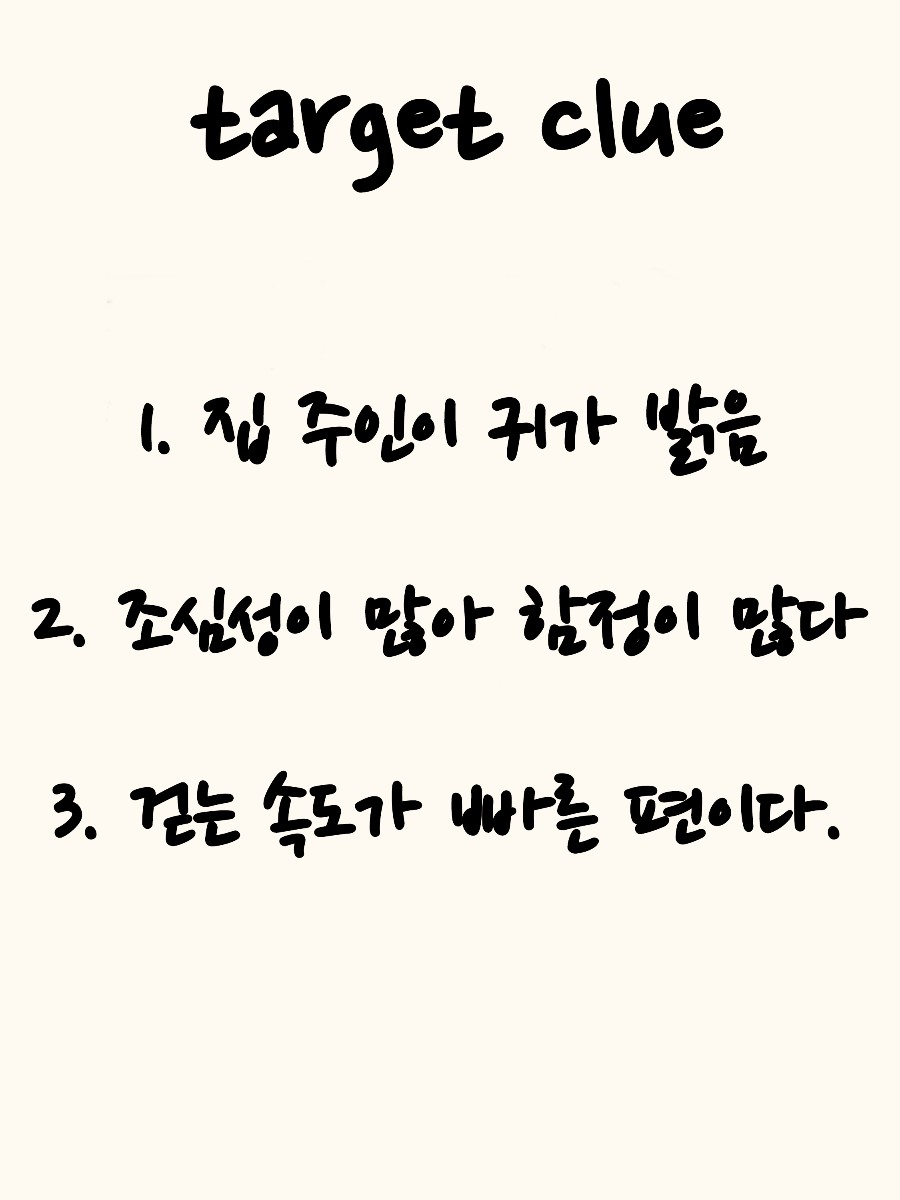 target clue
1. 집 주인이 귀가 밝음
2. 조심성이 많아 함정이 많다
3. 걷는 속도가 빠른 편이다.